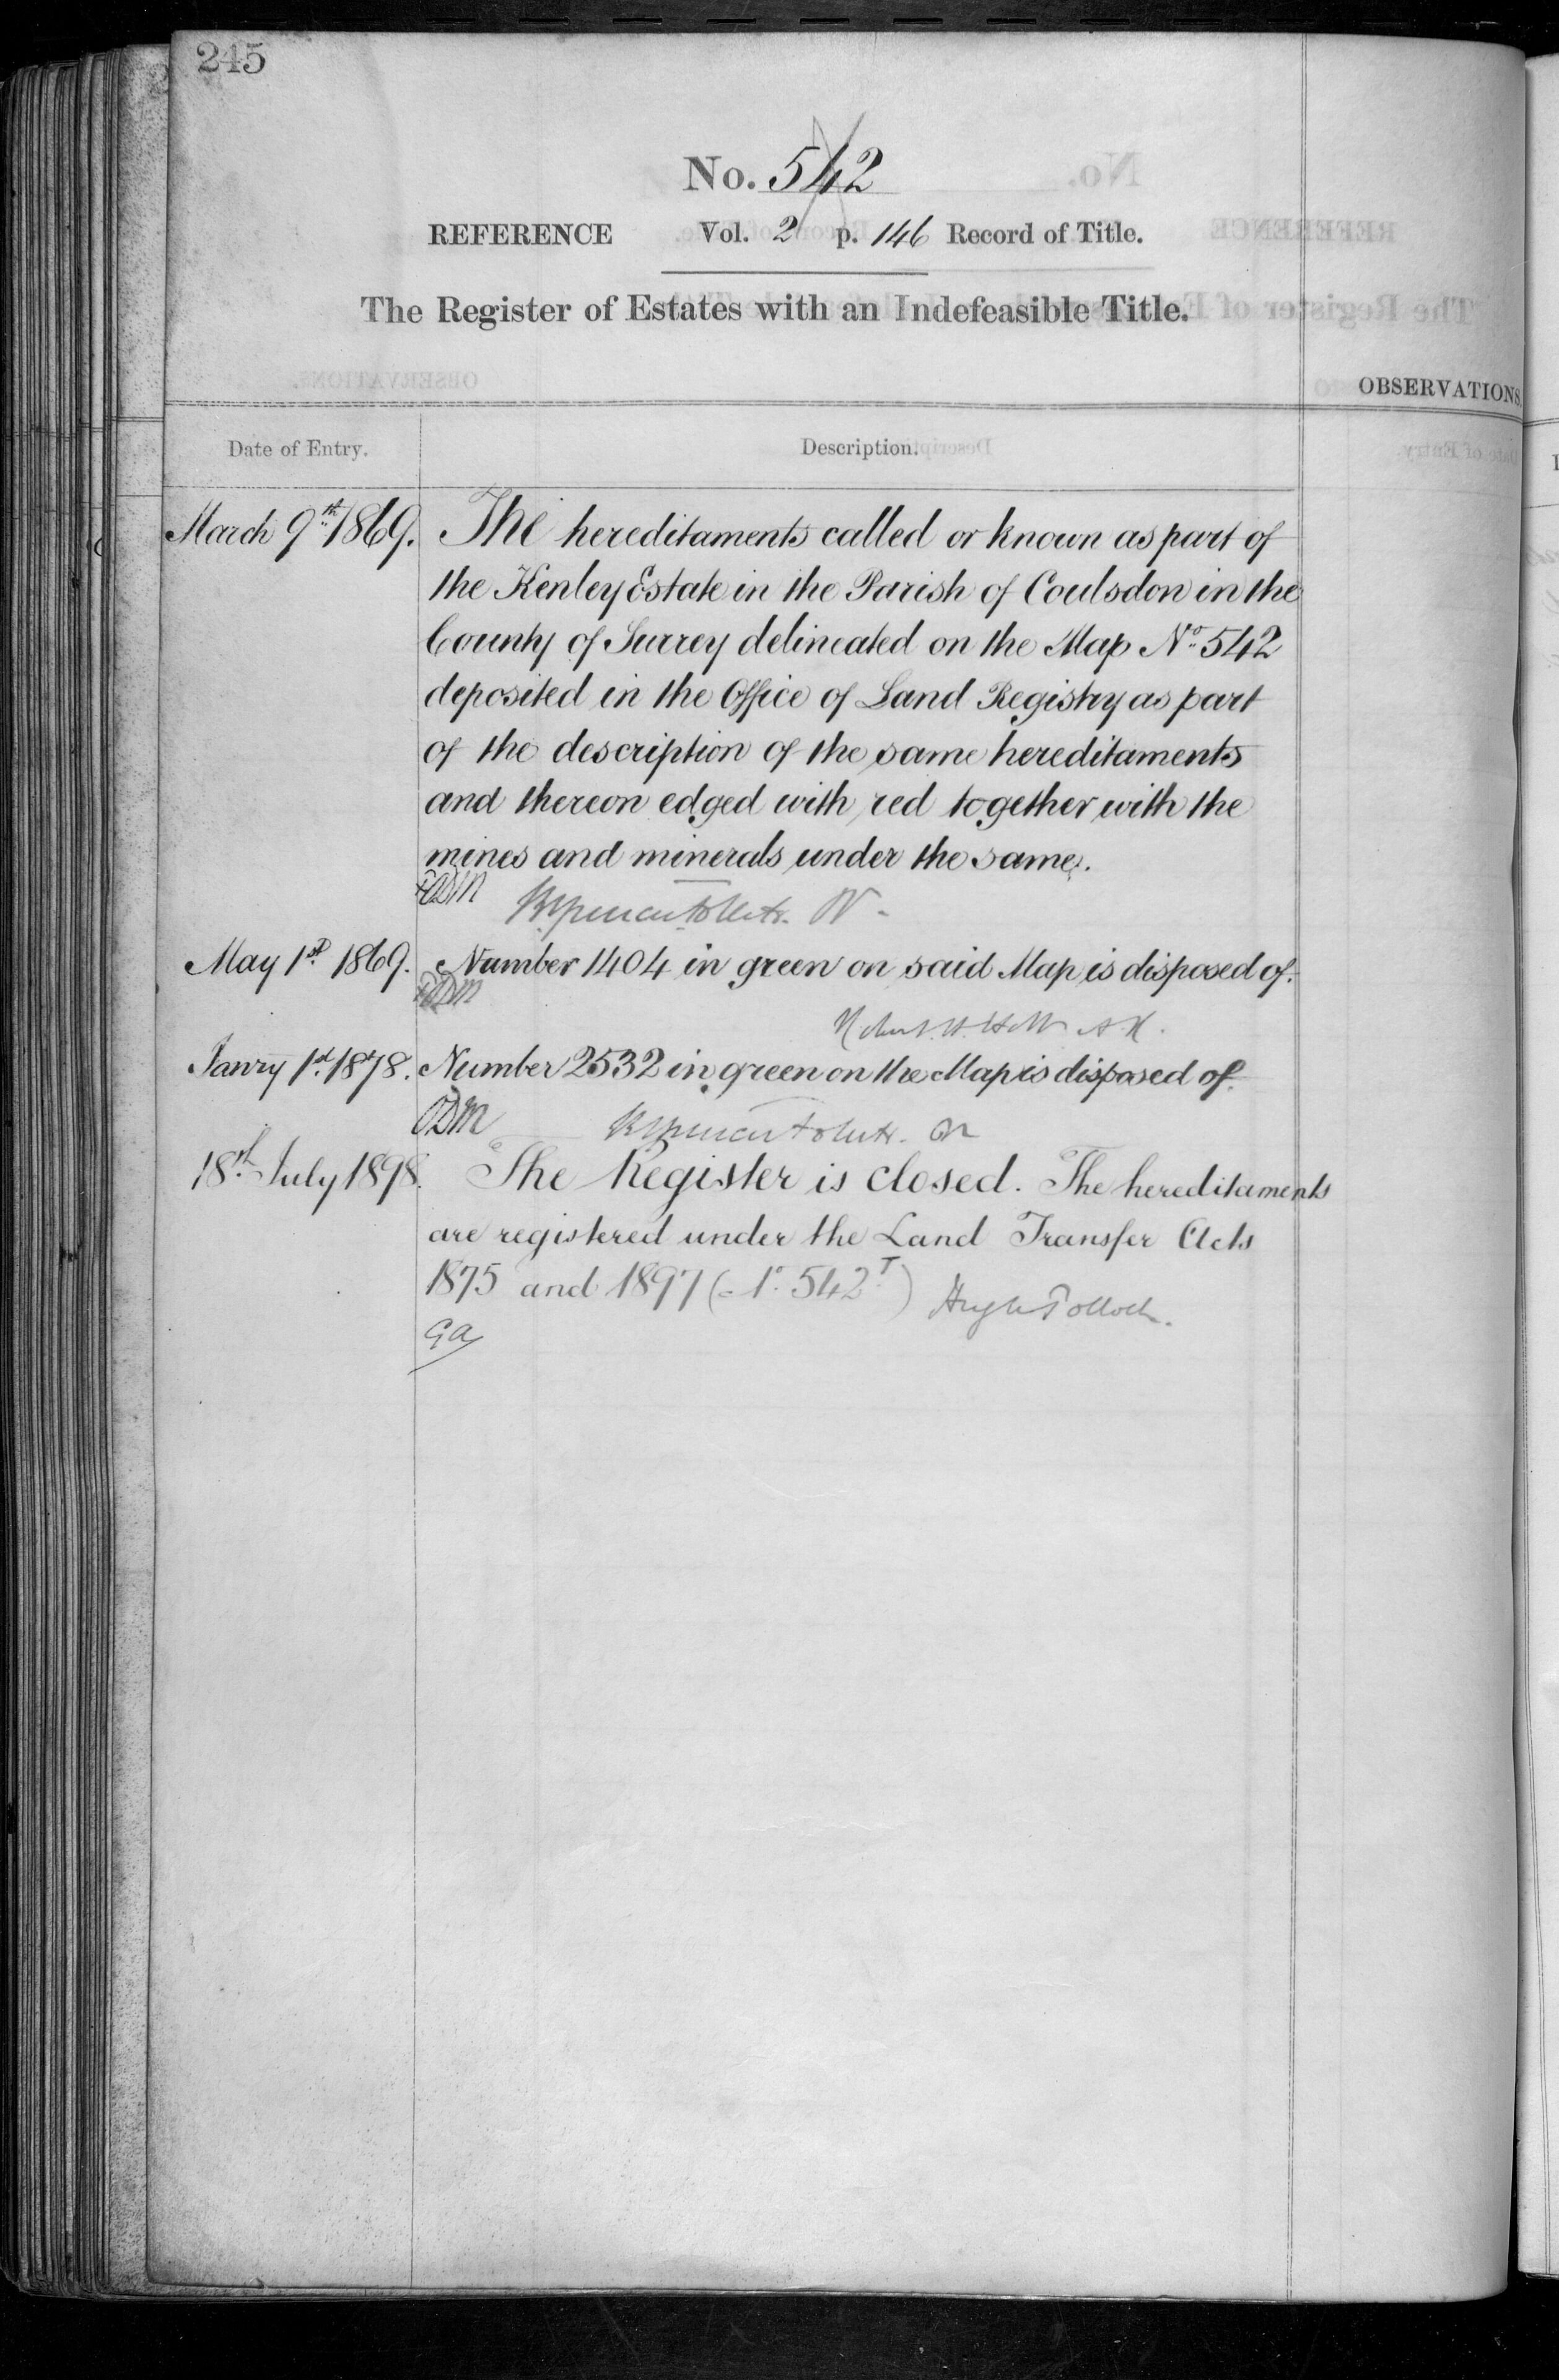 245
No. 542
REFERENCE Vol. 2 p. 146 Record of Title.
The Register of Estates with an Indefeasible Title.
OBSERVATIONS.
Date of Entry. Description.
March 9th 1869. The hereditaments called or known as part of
the Kenley Estate in the Parish of Coulsdon in the
County of Surrey delineated on the Map No 542
deposited in the Office of Land Registry as part
of the description of the same hereditaments
and thereon edged with red together with the
mines and minerals under the same.
May 1st 1869. Number 1404 in green on said Map is disposed of.
Janry 1st 1878. Number 2532 in green on the Map is disposed of.
ODM
18th July 1898. The Register is closed. The hereditaments
are registered under the Land Transfer Acts
1875 and 1897 (No. 542T) Hugh Pollock.
GA